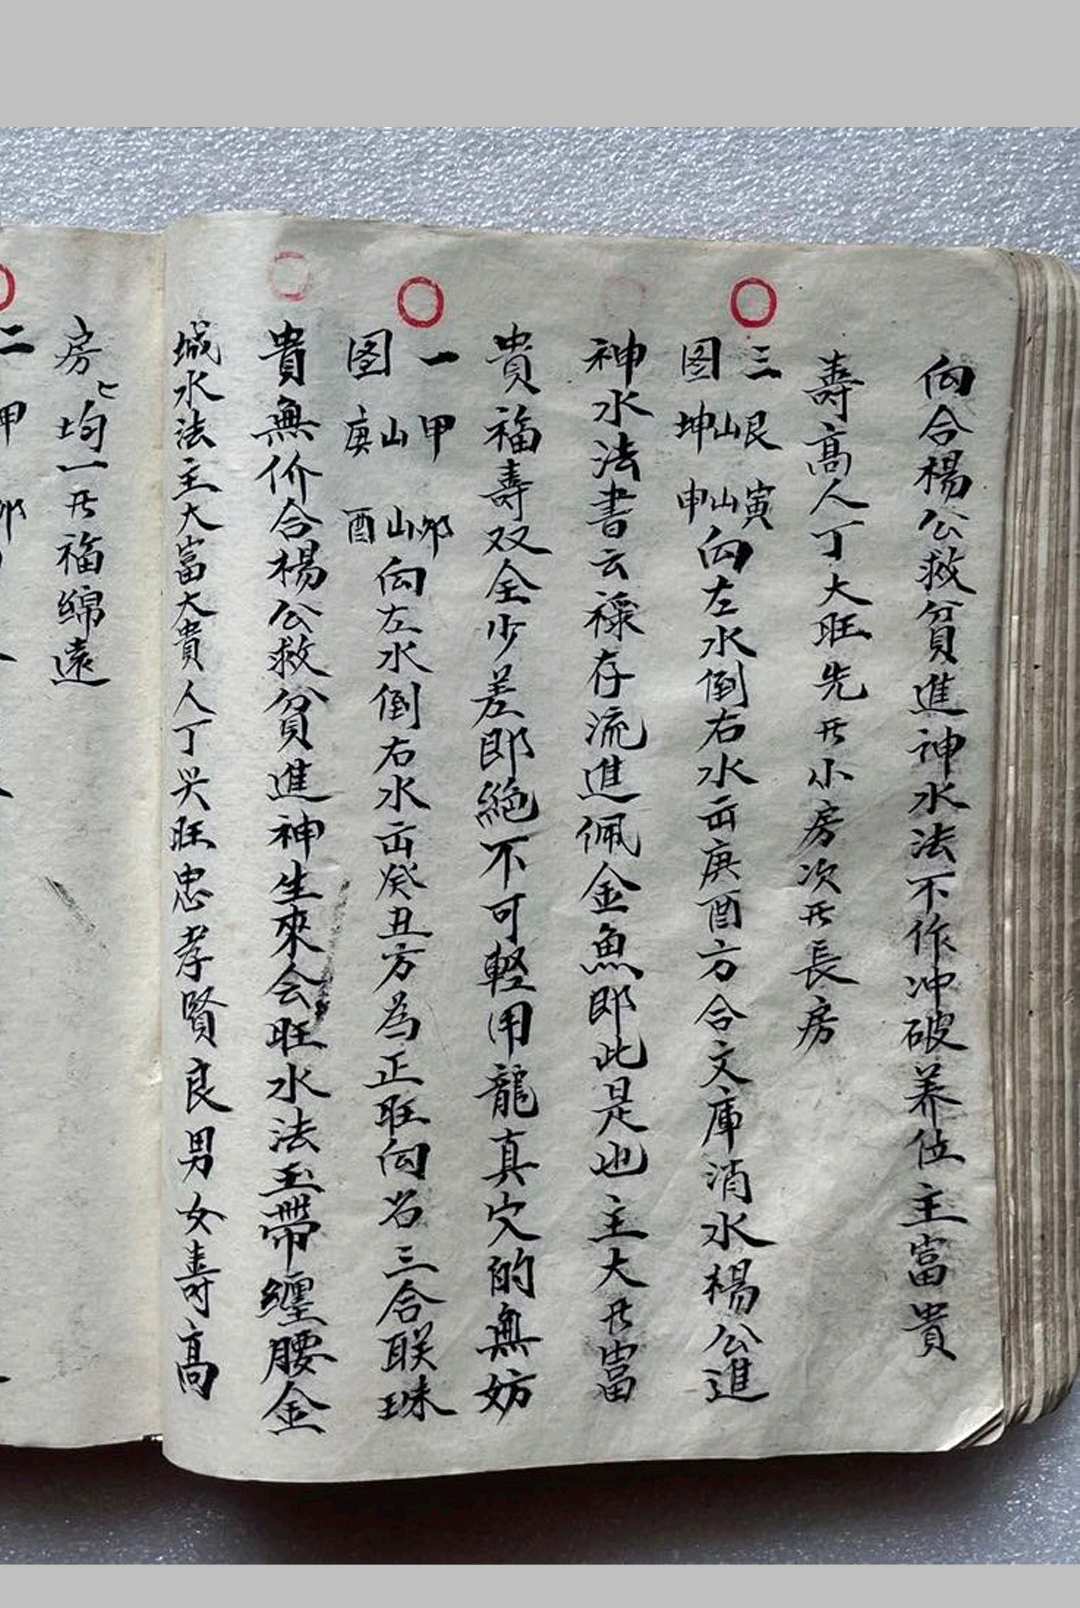 向合楊公救貧進神水法不作冲破养位主富貴
壽高人丁大旺先开小房次开長房
三图 艮山坤 寅山申向左水倒右水出庚酉方合文庫消水楊公進
神水法書云祿存流進佩金魚即此是也主大开富
貴福壽双全少差即絕不可軽用龍真穴的無妨
一图 甲山庚 卯山酉向左水倒右水出癸丑方為正旺向名三合联珠
貴無价合楊公救貧進神生來会旺水法玉帶纏腰金
城水法主大富大貴人丁兴旺忠孝賢良男女壽高
房七均一开福綿遠
二 甲 卯